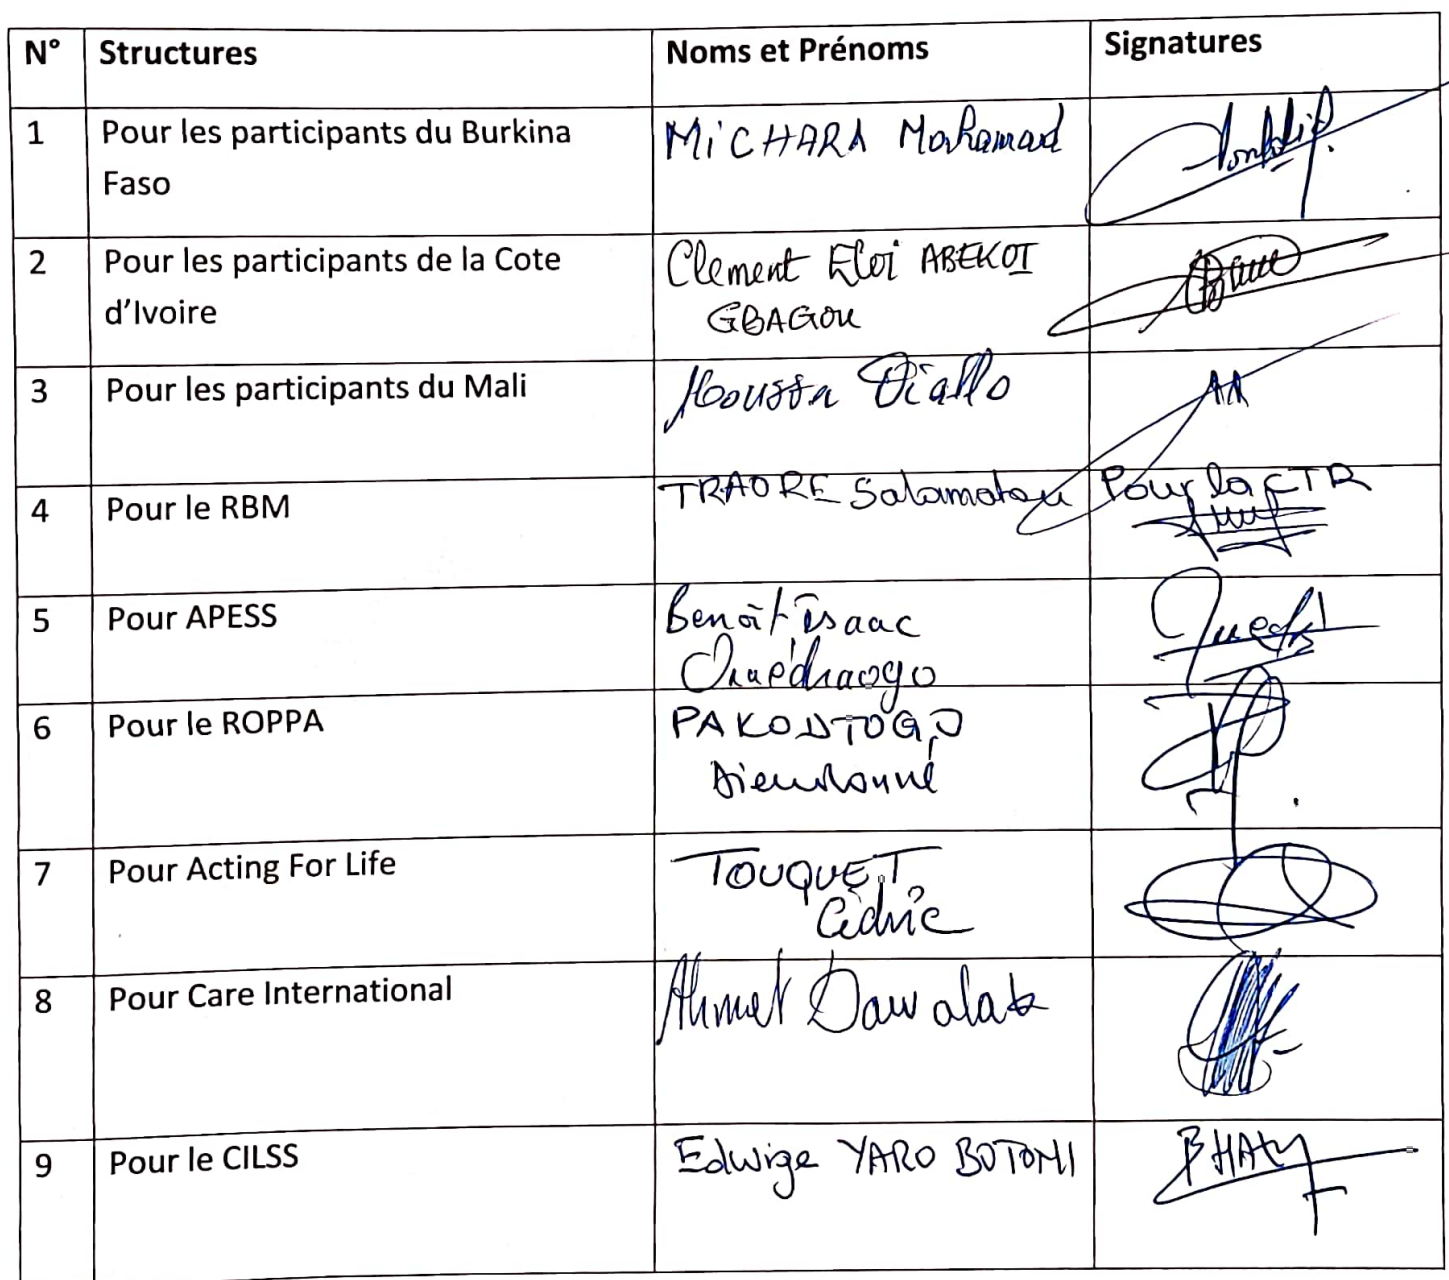 N° Structures Noms et Prénoms Signatures
1 Pour les participants du Burkina MiCHARA Mohamad
Faso
2 Pour les participants de la Cote Clement Eloi ABEKOI
d'Ivoire GBAGOU
3 Pour les participants du Mali Moussa Diallo
4 Pour le RBM TRAORE Salamatou Pour la CTR
5 Pour APESS Benoît Isaac
Ouédraogo
6 Pour le ROPPA PAKODTOGO
Dieudonné
7 Pour Acting For Life TOUQUET
Cédric
8 Pour Care International Ahmet Dawalak
9 Pour le CILSS Edwige YARO BOTONI